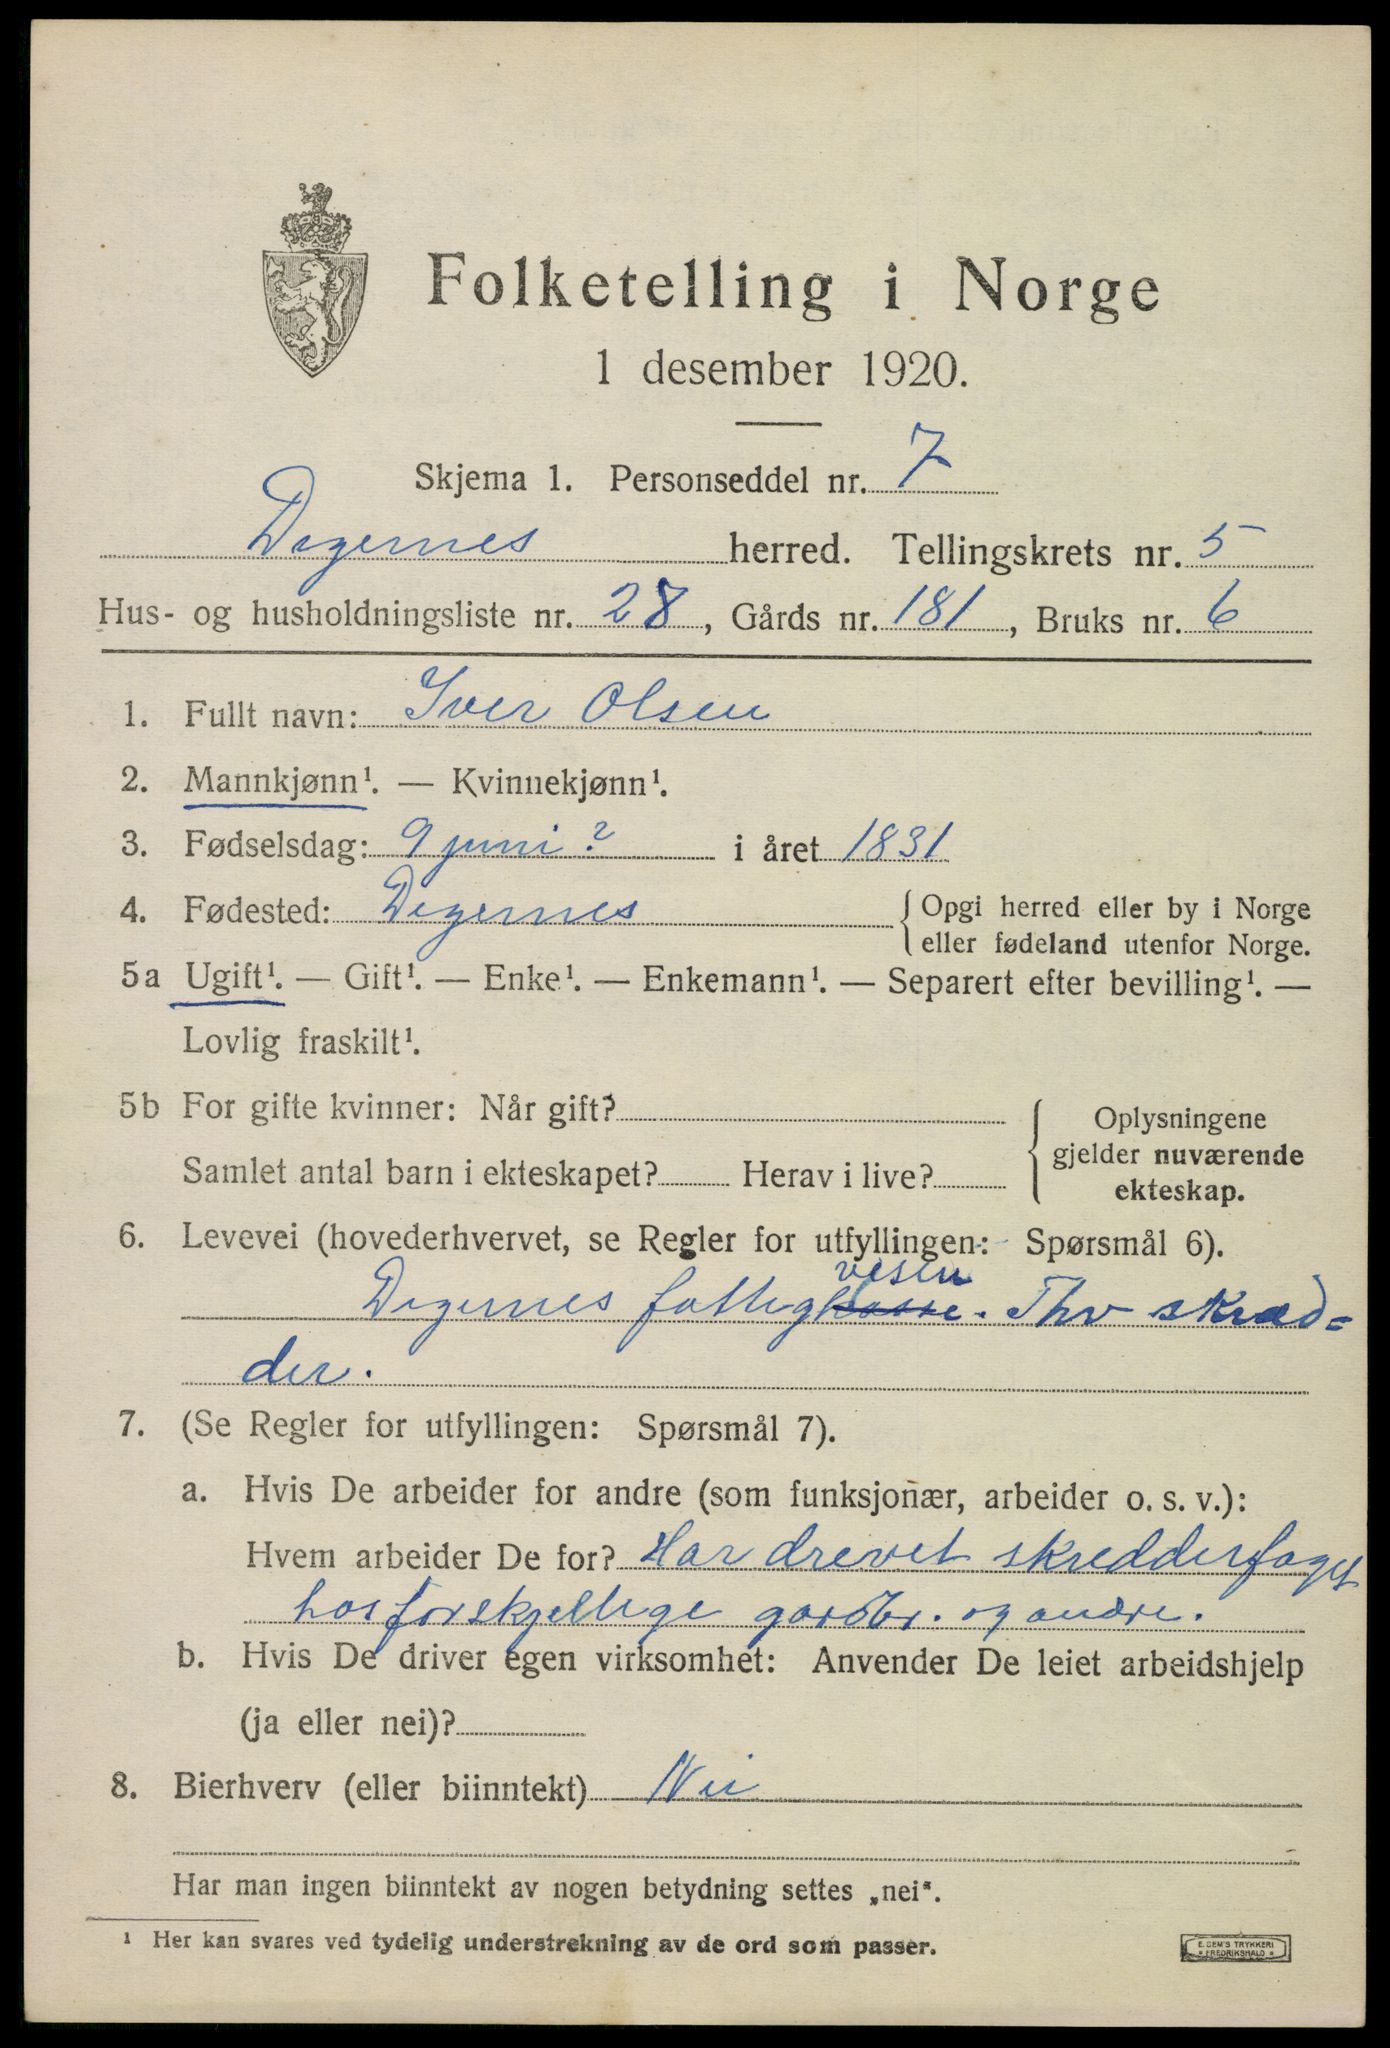 Folketelling i Norge
1 desember 1920.
Skjema 1. Personseddel nr. 7
Degernes herred. Tellingskrets nr. 5
Hus- og husholdningsliste nr. 28, Gårds nr. 181, Bruks nr. 6
1. Fullt navn: Iver Olsen
2. Mannkjønn¹. — Kvinnekjønn¹.
3. Fødselsdag: 9 juni? i året 1831
4. Fødested: Degernes
{ Opgi herred eller by i Norge
eller fødeland utenfor Norge.
5a Ugift¹. — Gift¹. — Enke¹. — Enkemann¹. — Separert efter bevilling¹. —
Lovlig fraskilt¹.
5b For gifte kvinner: Når gift?
Samlet antal barn i ekteskapet? Herav i live?
{ Oplysningene
gjelder nuværende
ekteskap.
6. Levevei (hovederhvervet, se Regler for utfyllingen: Spørsmål 6).
vesen
Degernes fattigkasse. Fhv skræd=
der.
7. (Se Regler for utfyllingen: Spørsmål 7).
a. Hvis De arbeider for andre (som funksjonær, arbeider o. s. v.):
Hvem arbeider De for? Har drevet skredderfaget
hos forskjellige gardbr. og andre.
b. Hvis De driver egen virksomhet: Anvender De leiet arbeidshjelp
(ja eller nei)?
8. Bierhverv (eller biinntekt) Nei
Har man ingen biinntekt av nogen betydning settes „nei".
¹ Her kan svares ved tydelig understrekning av de ord som passer.
E. SEM'S TRYKKERI
FREDRIKSHALD